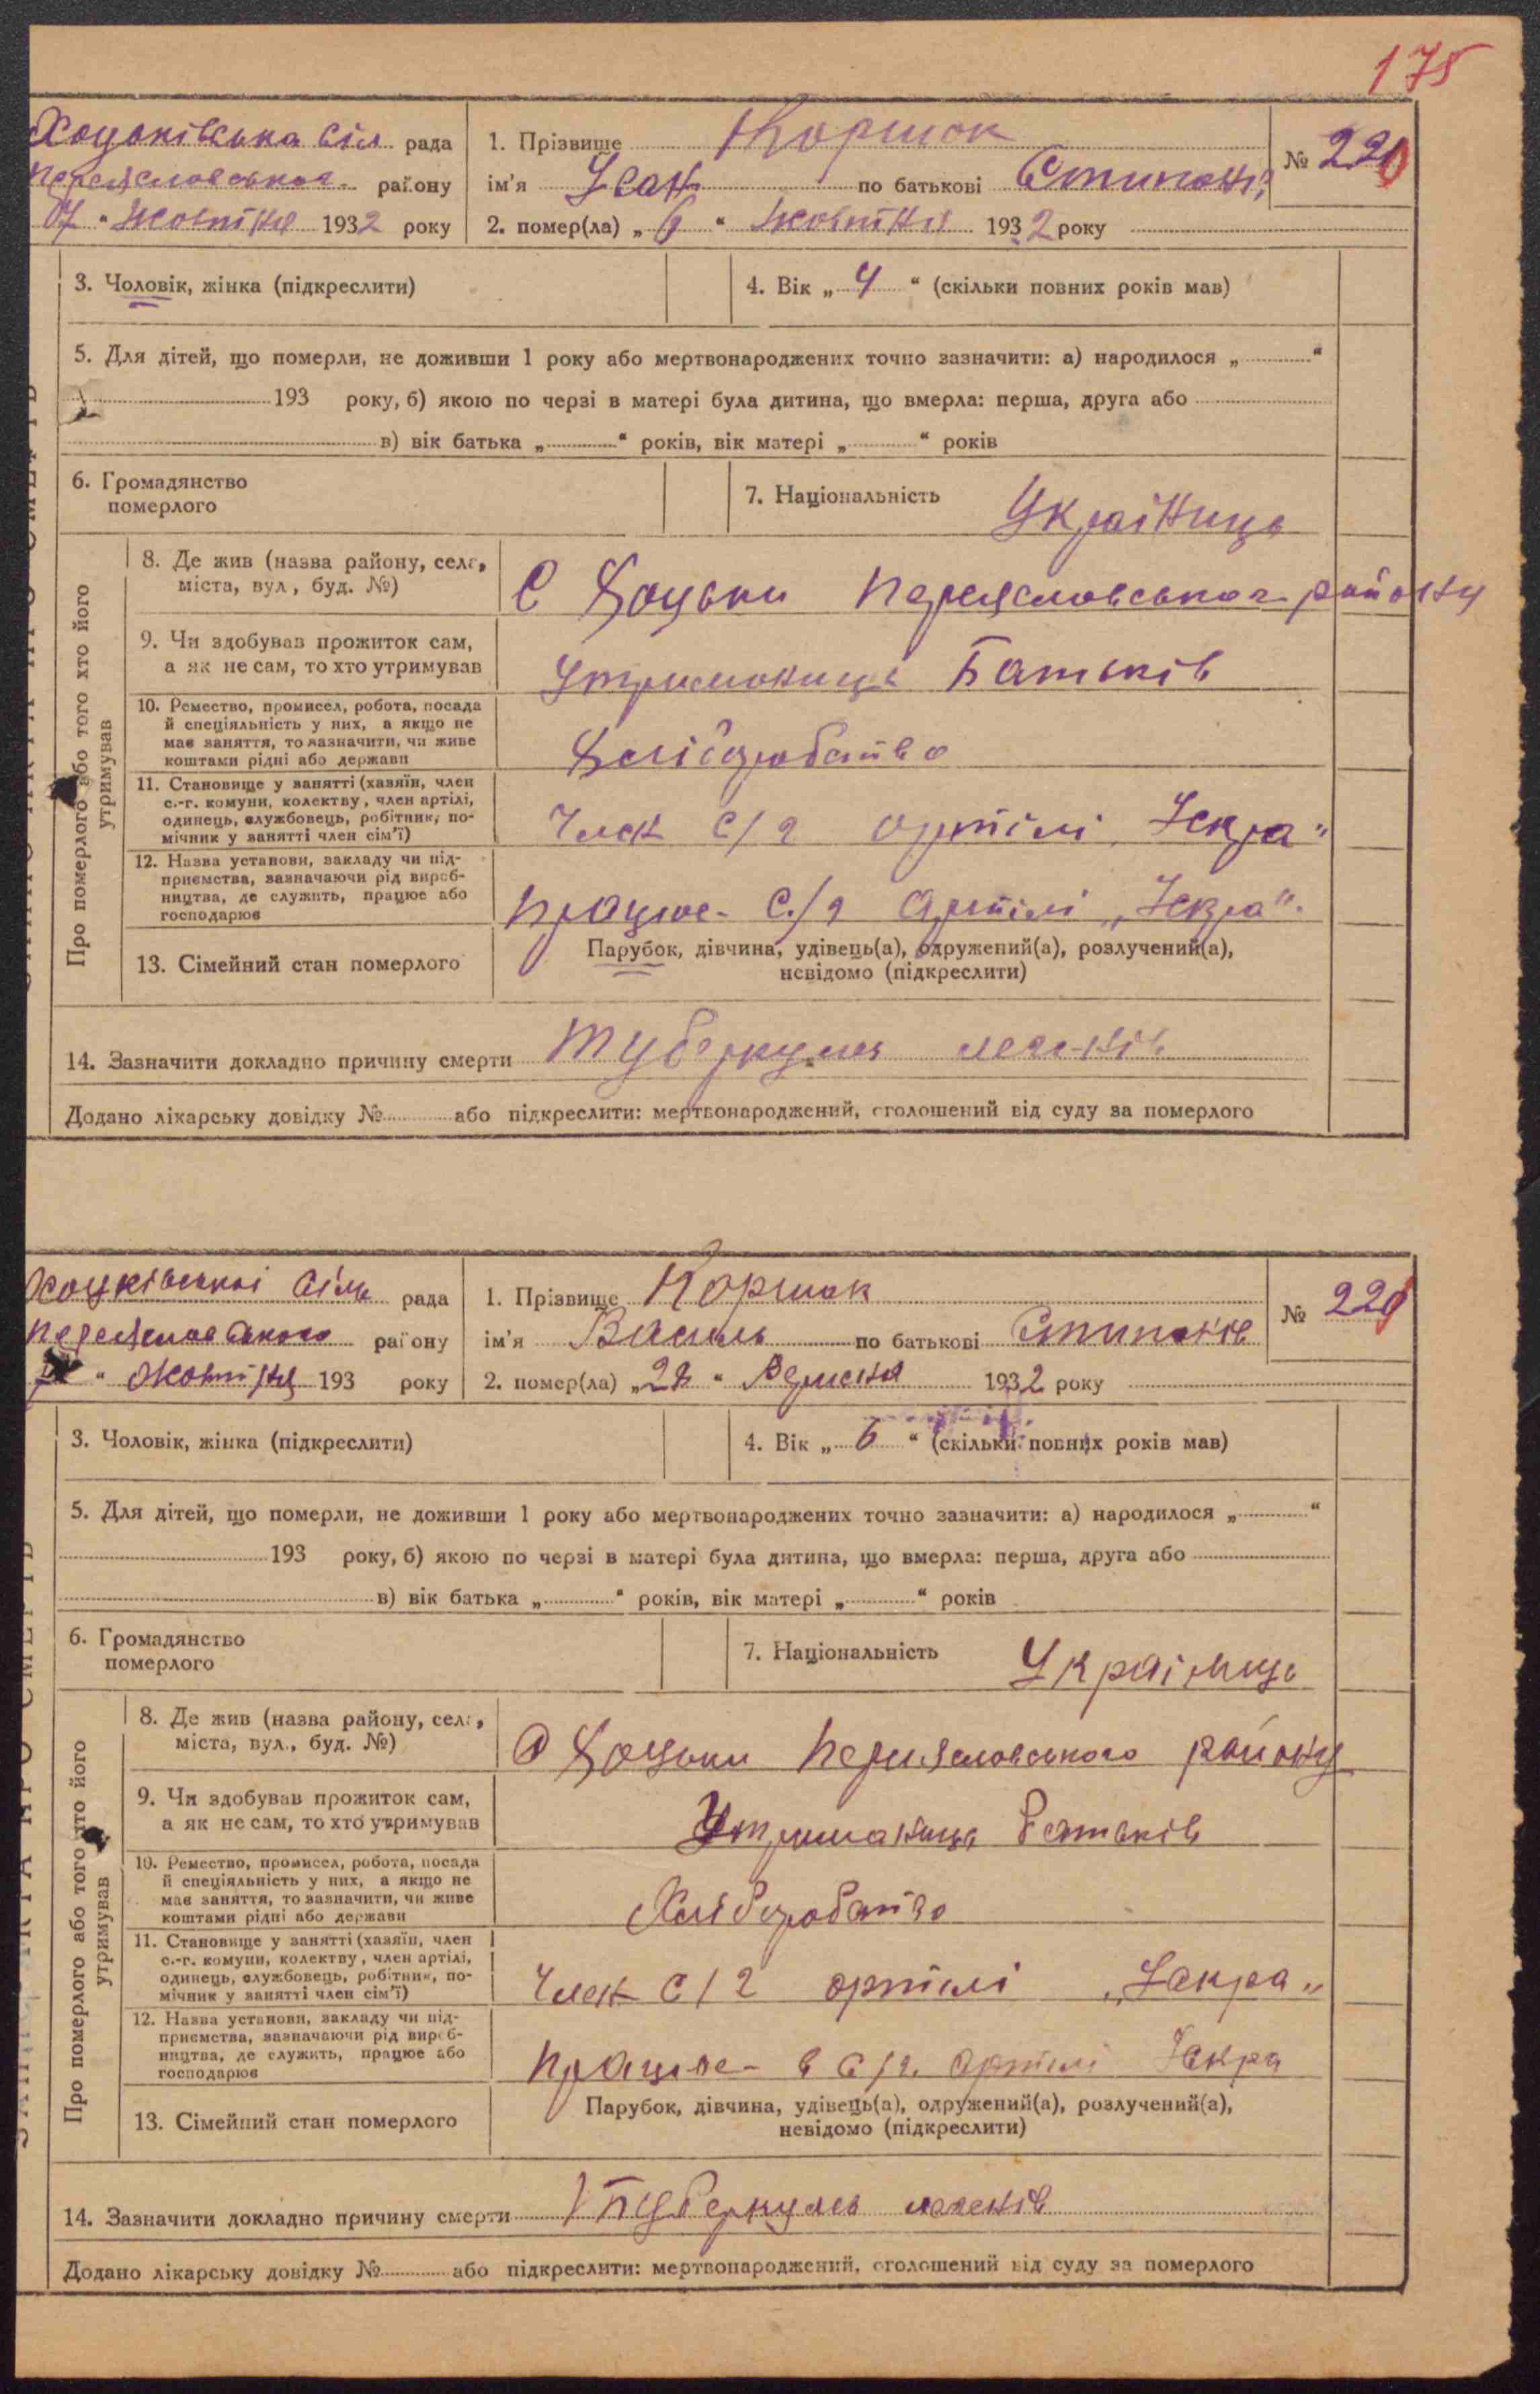 175
Хоцьківська сіл рада
1. Прізвище Коршок
№ 220
Переяславського району
ім'я Іван по батькові Степанов
07 " Жовтня 1932 року
2. помер(ла) „ 6 " Жовтня 1932 року
3. Чоловік, жінка (підкреслити)
4. Вік „ 4 " (скільки повних років мав)
5. Для дітей, що померли, не доживши 1 року або мертвонароджених точно зазначити: а) народилося „ "
193 року, б) якою по черзі в матері була дитина, що вмерла: перша, друга або
в) вік батька „ " років, вік матері „ " років
6. Громадянство
померлого
7. Національність Українець
Про померлого або того хто його
утримував
8. Де жив (назва району, села,
міста, вул, буд. №)
С Хоцьки Переяславського району
9. Чи здобував прожиток сам,
а як не сам, то хто утримував
Утриманець Батьків
10. Ремество, промисел, робота, посада
й спеціяльність у них, а якщо не
має заняття, то зазначити, чи живе
коштами рідні або держави
Хліборобство
11. Становище у занятті (хазяїн, член
с.-г. комуни, колективу, член артілі,
одинець, службовець, робітник, по-
мічник у занятті член сім'ї)
Член С/г артілі „Іскра"
12. Назва установи, закладу чи під-
приємства, зазначаючи рід вироб-
ництва, де служить, працює або
господарює
Працює С./г Артілі „Іскра".
13. Сімейний стан померлого
Парубок, дівчина, удівець(а), одружений(а), розлучений(а),
невідомо (підкреслити)
14. Зазначити докладно причину смерти Туберкульоз легенів
Додано лікарську довідку № або підкреслити: мертвонароджений, оголошений від суду за померлого
Хоцківської сіль рада
1. Прізвище Коршак
№ 221
Переяславського району
ім'я Василь по батькові Степанов
" Жовтня 193 року
2. помер(ла) „ 28 " Вересня 1932 року
3. Чоловік, жінка (підкреслити)
4. Вік „ 6 " (скільки повних років мав)
5. Для дітей, що померли, не доживши 1 року або мертвонароджених точно зазначити: а) народилося „ "
193 року, б) якою по черзі в матері була дитина, що вмерла: перша, друга або
в) вік батька „ " років, вік матері „ " років
6. Громадянство
померлого
7. Національність Українець
Про померлого або того хто його
утримував
8. Де жив (назва району, села,
міста, вул., буд. №)
С Хоцьки Переяславського району
9. Чи здобував прожиток сам,
а як не сам, то хто утримував
Утриманець Батьків
10. Ремество, промисел, робота, посада
й спеціяльність у них, а якщо не
має заняття, то зазначити, чи живе
коштами рідні або держави
Хліборобство
11. Становище у занятті (хазяїн, член
с.-г. комуни, колективу, член артілі,
одинець, службовець, робітник, по-
мічник у занятті член сім'ї)
Член С/г артілі „Іскра"
12. Назва установи, закладу чи під-
приємства, зазначаючи рід вироб-
ництва, де служить, працює або
господарює
Працює в С/г. артілі Іскра
13. Сімейний стан померлого
Парубок, дівчина, удівець(а), одружений(а), розлучений(а),
невідомо (підкреслити)
14. Зазначити докладно причину смерти Туберкульоз легенів
Додано лікарську довідку № або підкреслити: мертвонароджений, оголошений від суду за померлого